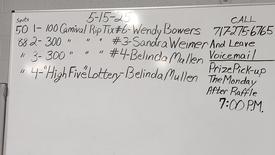 5-15-25
Spots
50 1-100 Carnival Rip Tix #6-Wendy Bowers
88 2-300 " " " #3-Sandra Weimer
" 3-300 " " " #4-Belinda Mullen
" 4-"High Five" Lottery-Belinda Mullen
CALL
717-275-6765
And Leave
Voicemail
Prize Pick-up
The Monday
After Raffle
7:00 P.M.